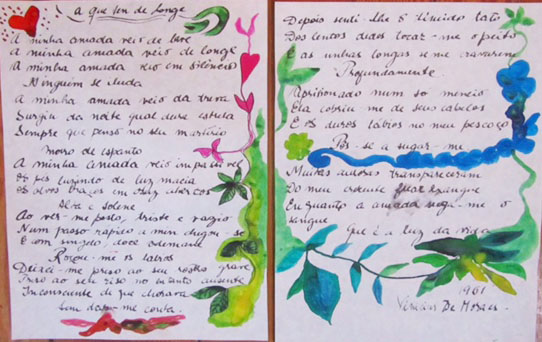 A que vem de longe
A minha amada veio de leve
A minha amada veio de longe
A minha amada veio em silêncio
Ninguém se iluda
A minha amada veio da treva
Surgiu da noite qual dura estrela
Sempre que penso no seu martírio
Morro de espanto
A minha amada veio impassível
Os pés luzindo de luz macia
Os alvos braços em cruz abertos
Alta e solene
Ao ver-me posto, triste e vazio
Num passo rápido a mim chegou-se
E com singelo, doce ademane
Roçou-me os lábios
Deixei-me preso ao seu rosto grave
Preso ao seu riso no entanto ausente
Inconsciente de que chorava
Sem dar-me conta.
Depois senti-lhe o tímido tato
Dos lentos dedos tocar-me o peito
E as unhas longas se me cravarem
Profundamente.
Aprisionado num só meneio
Ela cobriu-me de seus cabelos
E os duros lábios no meu pescoço
Pôs-se a sugar-me
Muitas auroras transpareceram
Do meu crescente ficar exangue
Enquanto a amada suga-me o
sangue
Que é a luz da vida
1961
Vinicius De Moraes